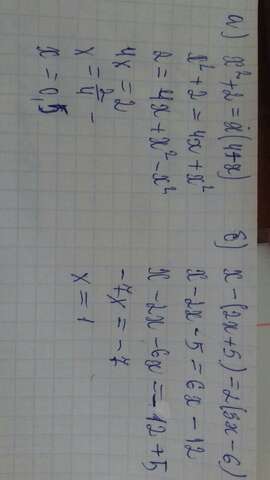 а) x²+2=x(4+x)
x²+2=4x+x²
2=4x+x²-x²
4x=2
x=2/4 -
x=0,5
б) x-(2x+5)=2(3x-6)
x-2x-5=6x-12
x-2x-6x=-12+5
-7x=-7
x=1